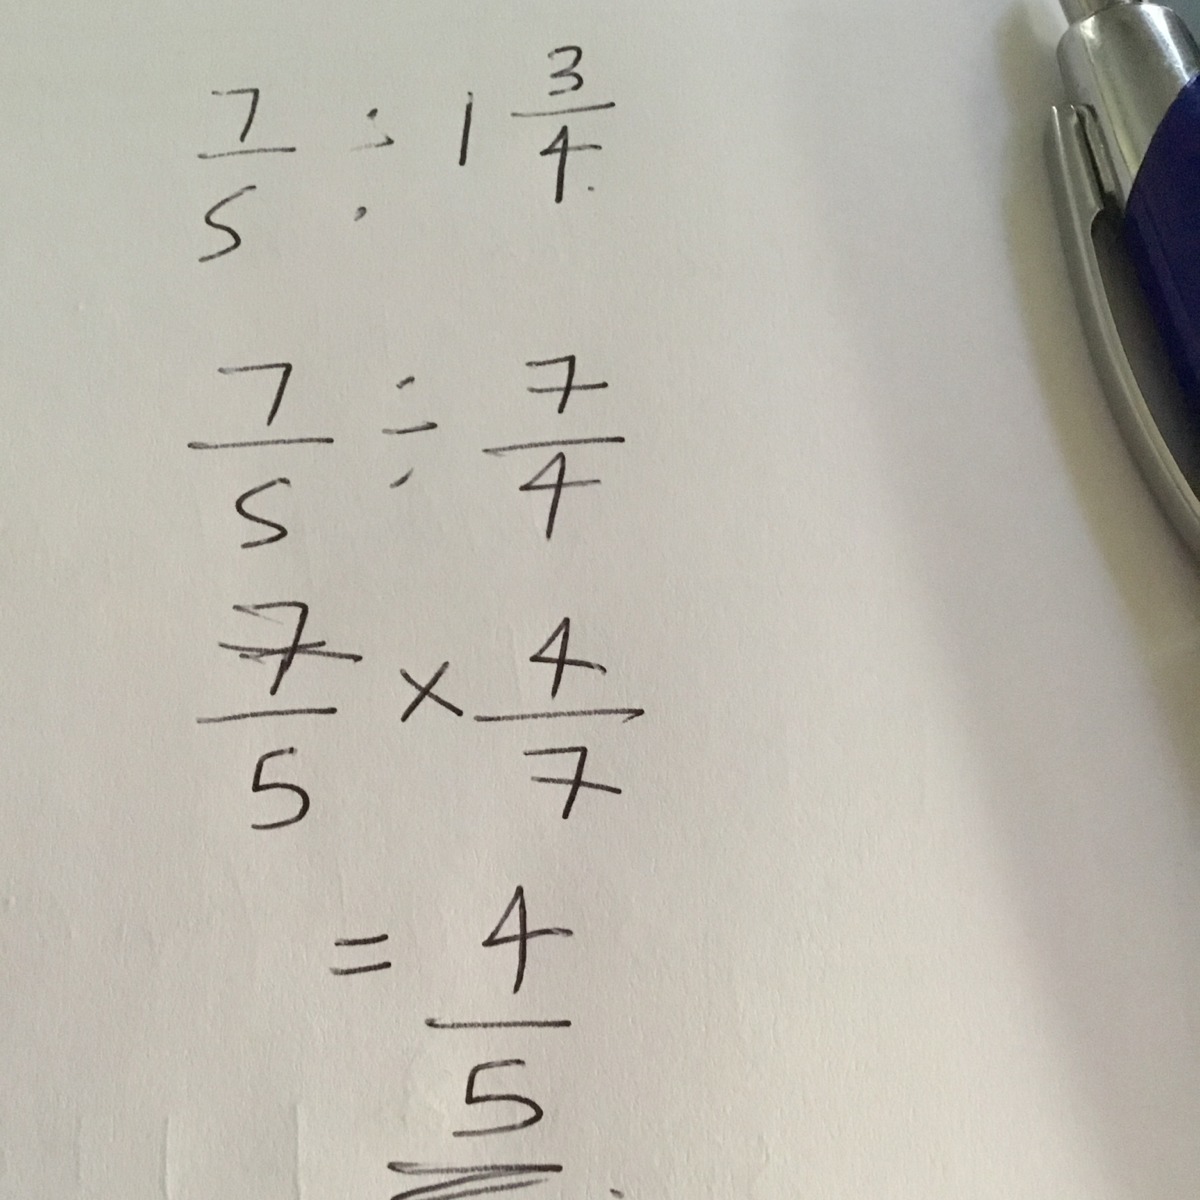 7/5 ÷ 1 3/4
7/5 ÷ 7/4
7/5 × 4/7
= 4/5